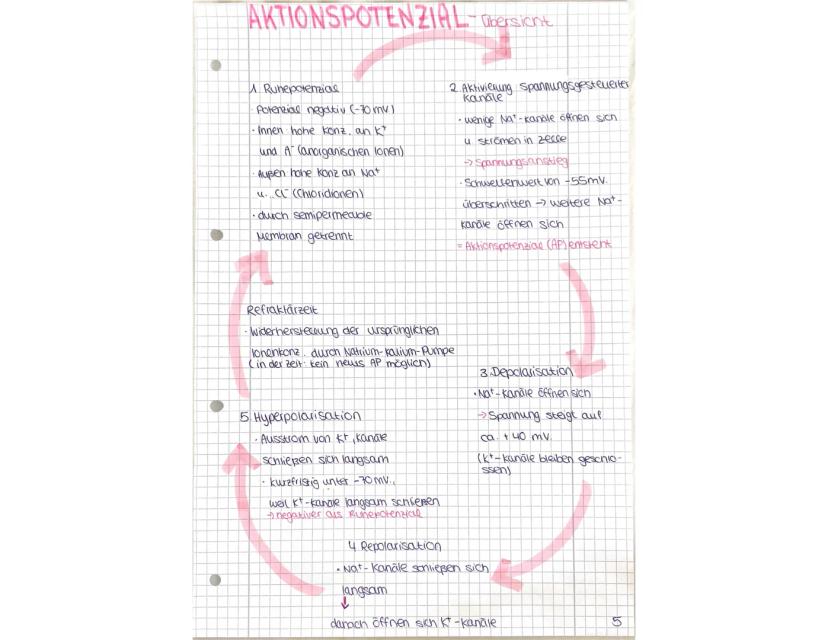 AKTIONSPOTENZIAL - Übersicht
1. Ruhepotenzial
· Potenzial negativ (-70 mV)
· Innen hohe Konz. an K⁺
und A⁻ (anorganischen Ionen)
· Außen hohe Konz an Na⁺
u. Cl⁻ (Chloridionen)
· durch semipermeable
Membran getrennt
2. Aktivierung spannungsgesteuerter
Kanäle
· wenige Na⁺-kanäle öffnen sich
u strömen in Zelle
→ Spannungsanstieg
· Schwellenwert von -55mV.
überschritten → weitere Na⁺-
kanäle öffnen sich
= Aktionspotenzial (AP) entsteht
3. Depolarisation
· Na⁺-kanäle öffnen sich
→ Spannung steigt auf
ca. +40 mV.
(K⁺-kanäle bleiben geschlo-
ssen)
4 Repolarisation
· Na⁺-Kanäle schließen sich
langsam
↓
danach öffnen sich K⁺-kanäle
5 Hyperpolarisation
· Ausstrom von K⁺, Kanäle
schließen sich langsam
· kurzfristig unter -70 mV.,
weil K⁺-kanäle langsam schließen
→ negativer als Ruhepotenzial
Refraktärzeit
· Widerherstellung der ursprünglichen
Ionenkonz. durch Natrium-Kalium-Pumpe
(in der Zeit: kein neues AP möglich)
5